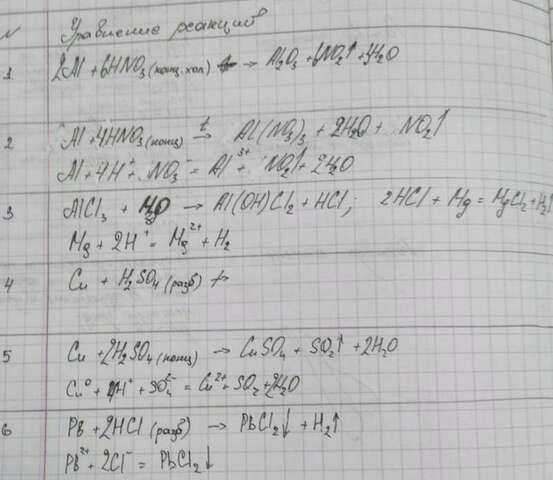 N Уравнение реакций
1 2Al + 6HNO₃ (конц. хол) → Al₂O₃ + 6NO₂↑ + 3H₂O
2 Al + 4HNO₃ (конц) t→ Al(NO₃)₃ + 2H₂O + NO₂↑
Al + 4H⁺ + NO₃⁻ = Al³⁺ + NO₂↑ + 2H₂O
3 AlCl₃ + H₂O → Al(OH)Cl₂ + HCl; 2HCl + Mg = MgCl₂ + H₂↑
Mg + 2H⁺ = Mg²⁺ + H₂
4 Cu + H₂SO₄ (разб) ↛
5 Cu + 2H₂SO₄ (конц) → CuSO₄ + SO₂↑ + 2H₂O
Cu⁰ + 4H⁺ + SO₄²⁻ = Cu²⁺ + SO₂ + 2H₂O
6 Pb + 2HCl (разб) → PbCl₂↓ + H₂↑
Pb²⁺ + 2Cl⁻ = PbCl₂↓